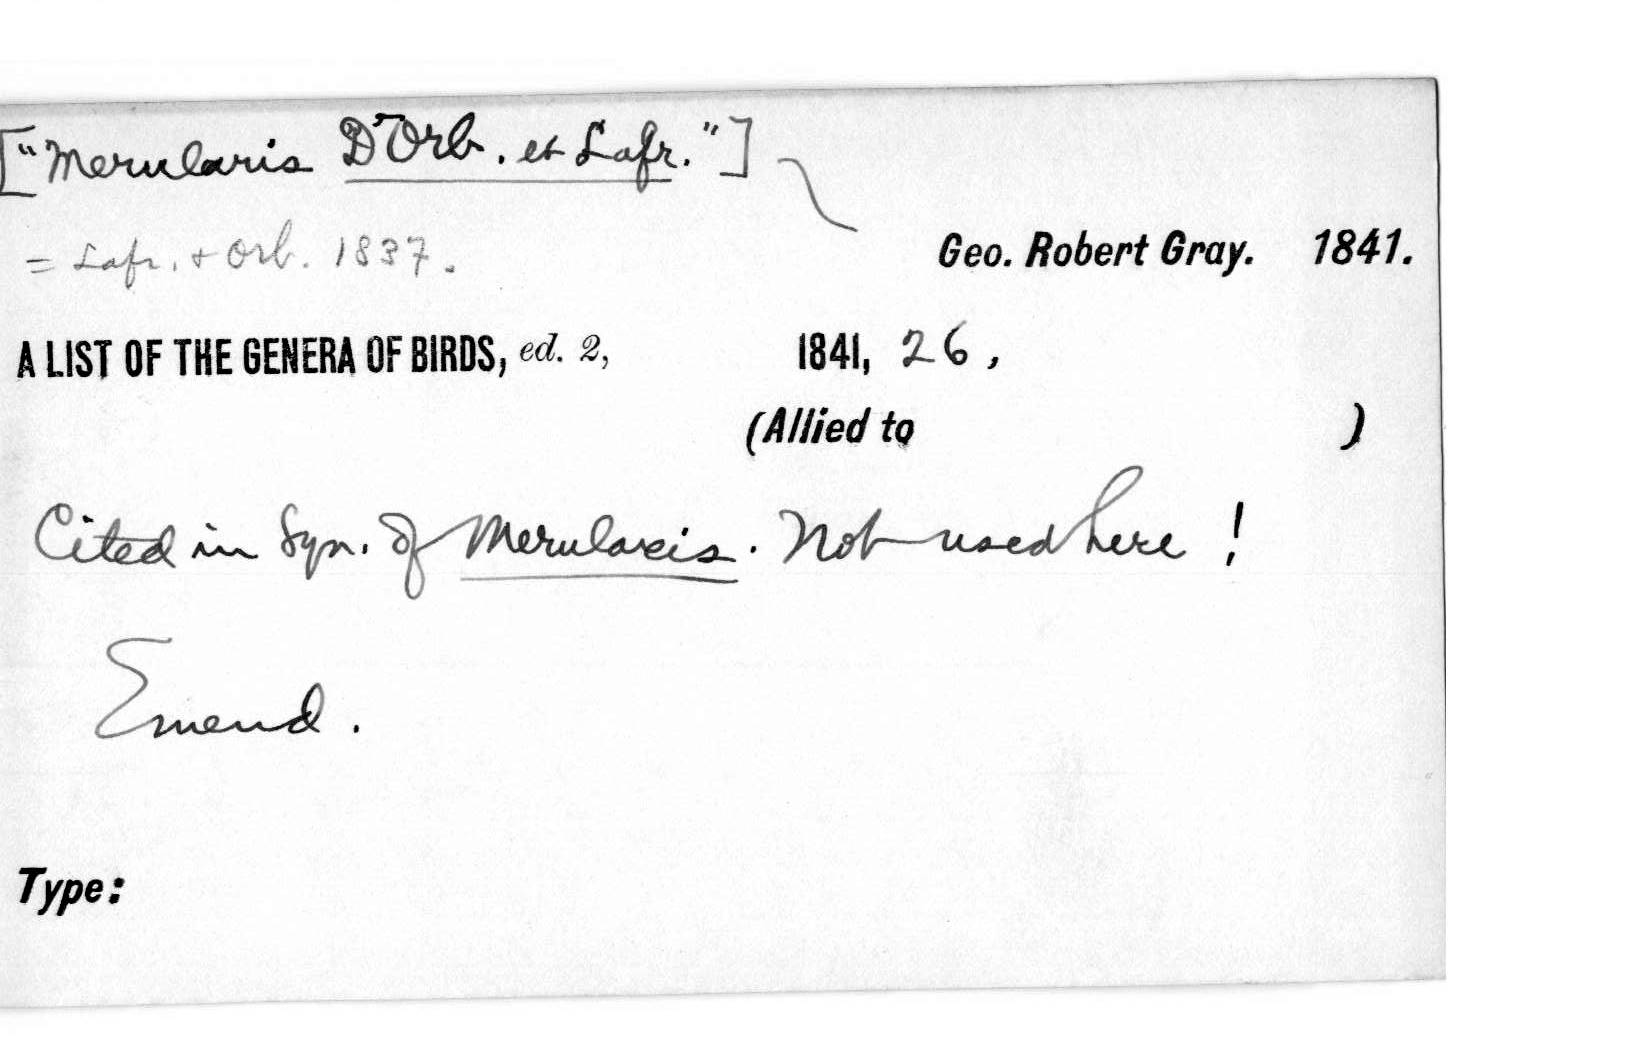 ["Merularis D'Orb. et Lafr."]
= Lafr. + Orb. 1837.
Geo. Robert Gray. 1841.
A LIST OF THE GENERA OF BIRDS, ed. 2, 1841, 26,
(Allied to )
Cited in Syn. of Merulaxis. Not used here!
Emend.
Type: